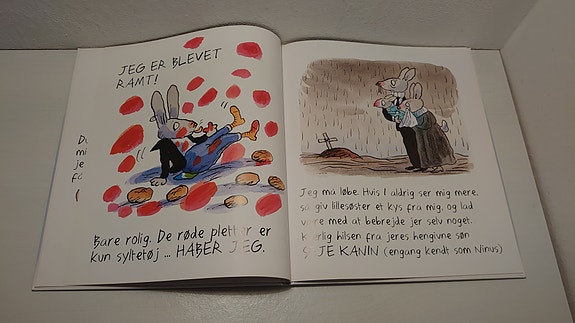 JEG ER BLEVET
RAMT!
Bare rolig. De røde pletter er
kun syltetøj ... HABER JEG.
Jeg må løbe. Hvis I aldrig ser mig mere,
så giv lillesøster et kys fra mig, og lad
være med at bebrejde jer selv noget.
Kærlig hilsen fra jeres hengivne søn
JE KANIN (engang kendt som Ninus)